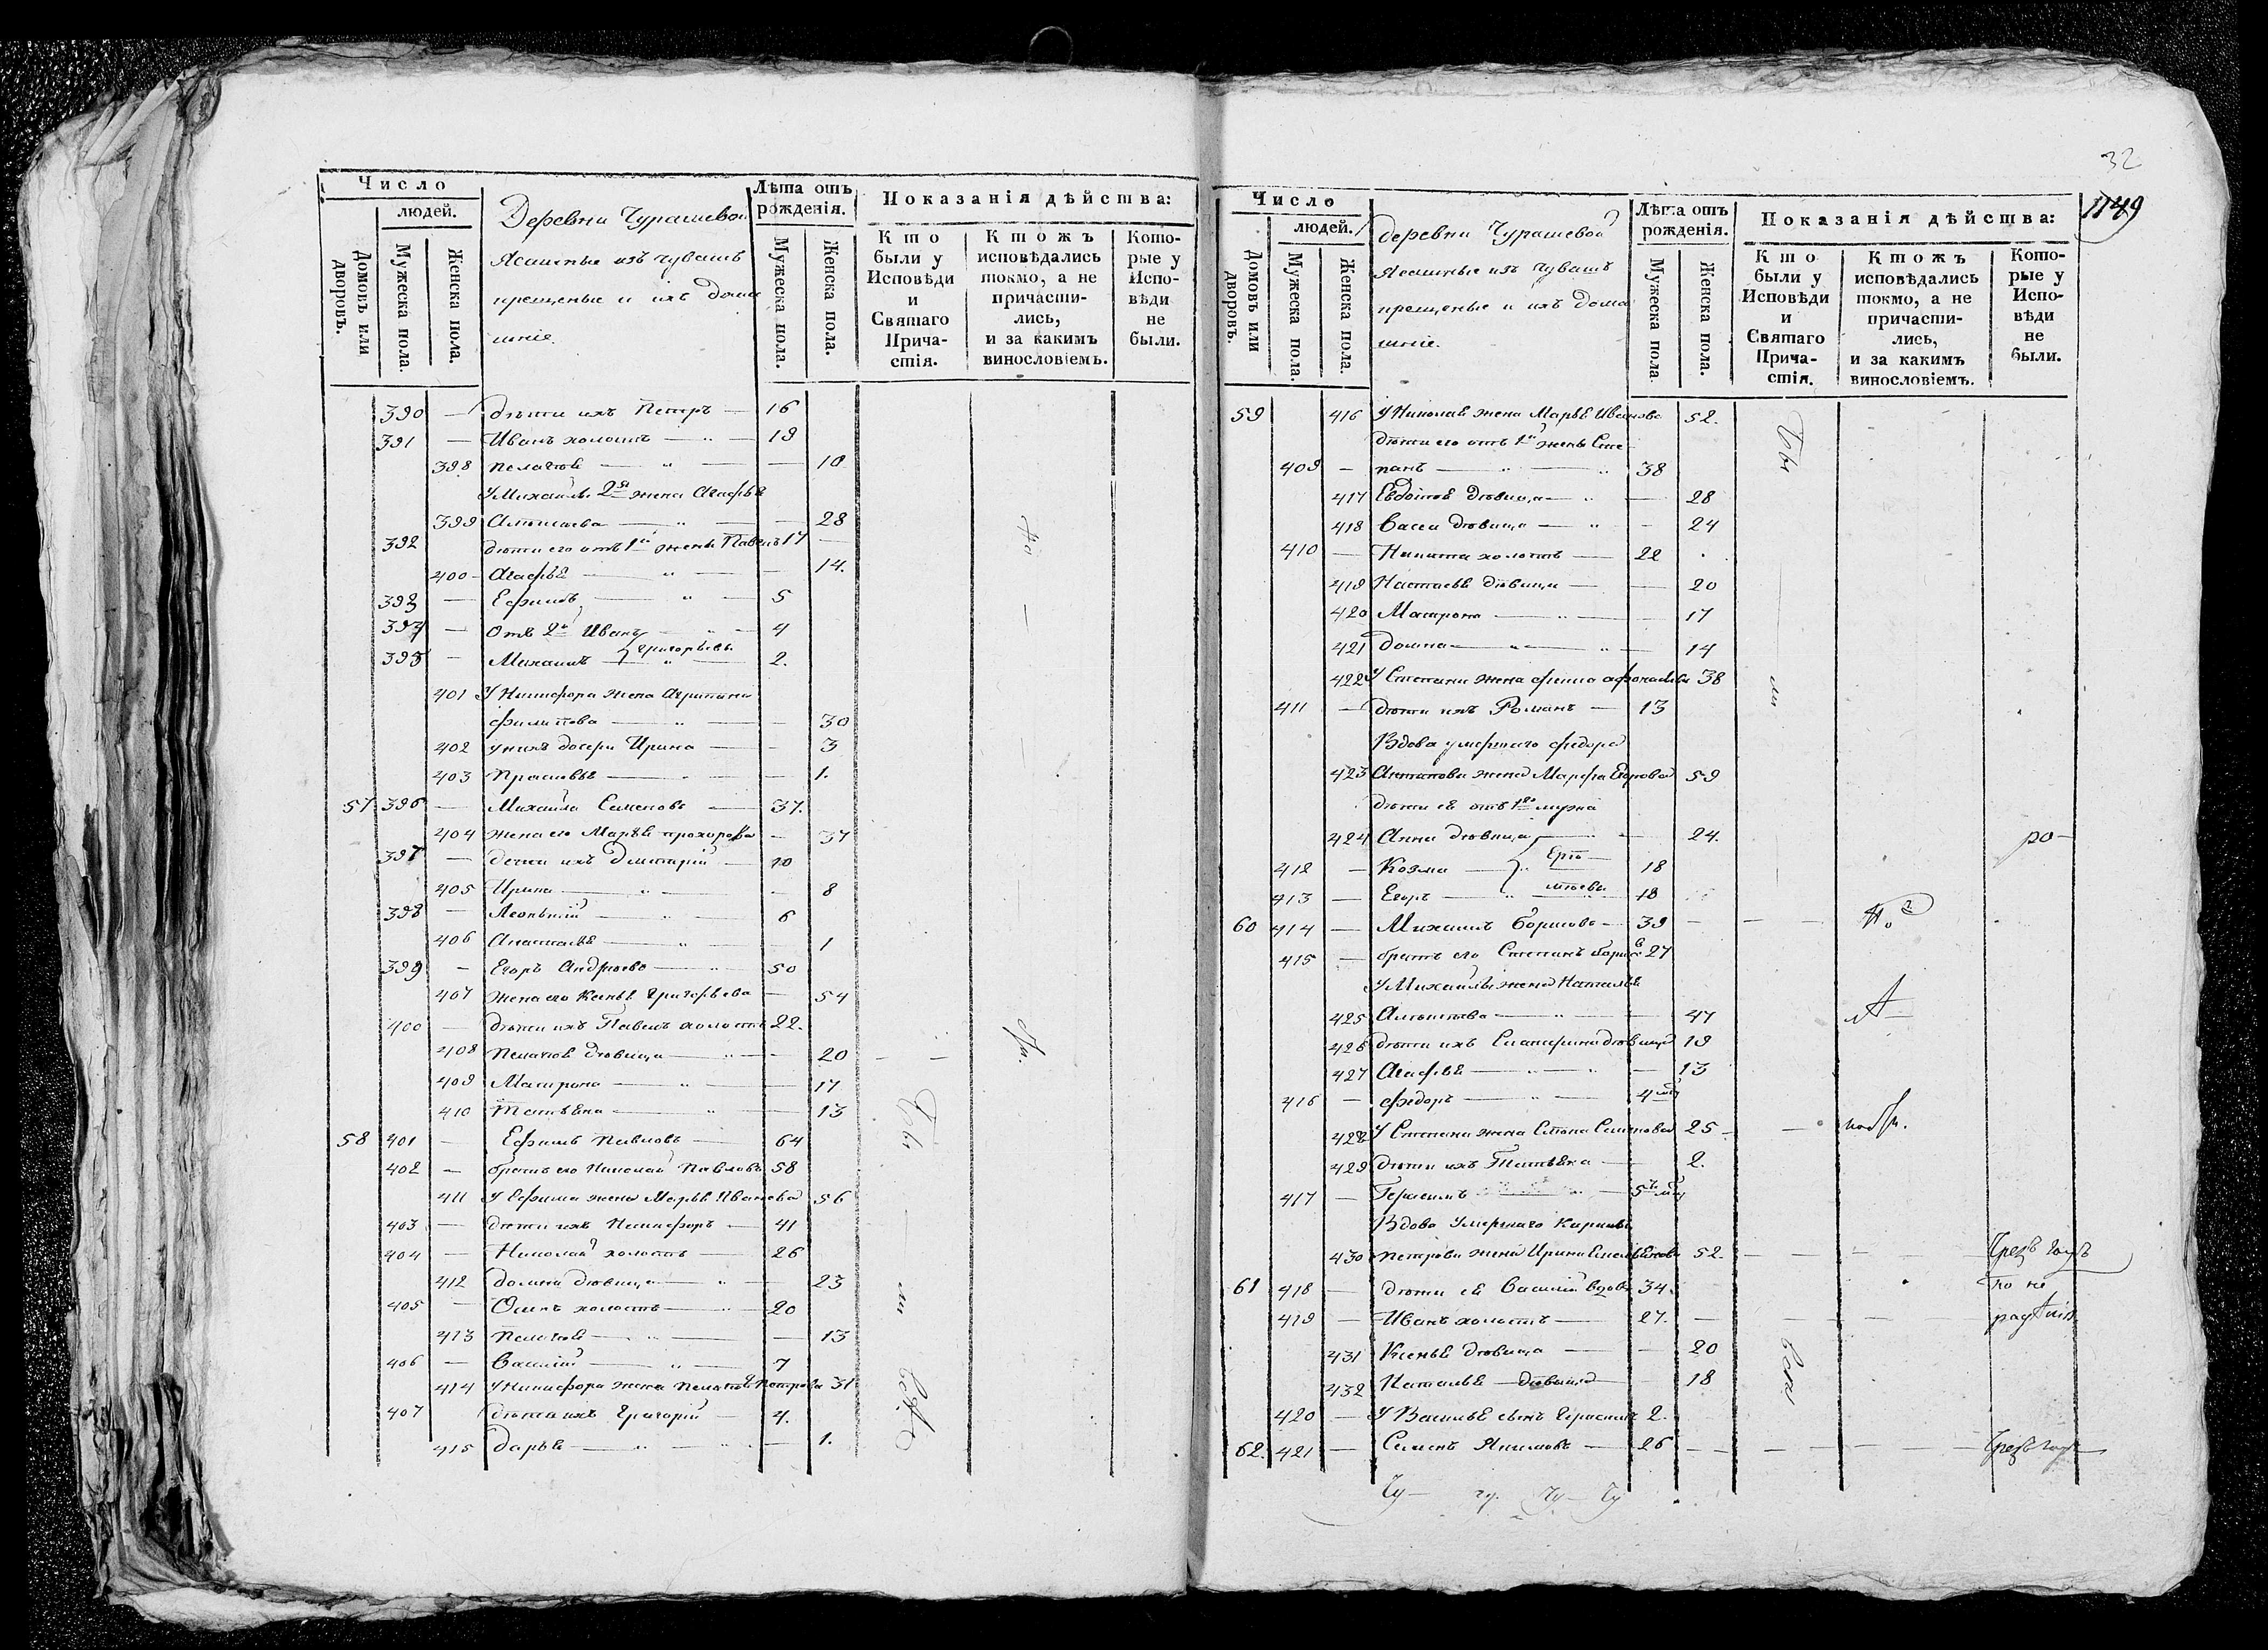 Число
людей.
Домовъ или дворовъ.
Мужеска пола.
Женска пола.
Деревни Чурашевой
Ясашные изъ чувашъ
крещеные и ихъ дома
шніе.
Лѣта отъ рожденія.
Мужеска пола.
Женска пола.
Показанія дѣйства:
Кто были у Исповѣди и Святаго Причастія.
Ктожъ исповѣдались токмо, а не причастились, и за какимъ винословіемъ.
Которые у Исповѣди не были.
390 — дѣти ихъ Петръ — 16
391 — Иванъ холостъ — 19
398 Пелагѣя — 10
У Михаилы 2я жена Агафья
399 — 28
392 дѣти его отъ 1й жены Павелъ 17
400 Агафья — 14.
393 — Ефимъ — 5
394 — Отъ 2й Иванъ — 4
Григорьевы
395 — Михаилъ — 2.
401 У Никифора жена Агрипина
Филипова — 30
402 у нихъ дочери Ирина — 3
403 Прасковья — 1.
57 396 — Михайла Семеновъ — 37.
404 жена его Марья Прохорова — 37
397 — дети ихъ Дмитрій — 10
405 Ирина — 8
398 — — 6
406 Анастасья — 1
399 — Егоръ Андреевъ — 50
407 жена его Ксенья Григорьева — 54
400 — дѣти ихъ Павелъ холостъ 22.
408 Пелагѣя дѣвица — 20
409 Матрона — 17
410 Татьяна — 13
58 401 — Ефимъ Павловъ — 64
402 — братъ его Николай Павловъ 58
411 У Ефима жена Марья Иванова 56
403 — дѣти ихъ Никифоръ — 41
404 — Николай холостъ — 26
412 Домна дѣвица — 23
405 — Осипъ холостъ — 20
413 Пелагѣя — 13
406 — Василій — 7
414 У Никифора жена Пелагѣя Петрова 31
407 дѣти ихъ Григорій — 4.
415 Дарья — 1.
Бы
ли
всѣ
32
1149
Число
людей.
Домовъ или дворовъ.
Мужеска пола.
Женска пола.
Деревни Чурашевой
Ясашные изъ чувашъ
крещеные и ихъ дома
шніе.
Лѣта отъ рожденія.
Мужеска пола.
Женска пола.
Показанія дѣйства:
Кто были у Исповѣди и Святаго Причастія.
Ктожъ исповѣдались токмо, а не причастились, и за какимъ винословіемъ.
Которые у Исповѣди не были.
59 416 У Николая жена Марья Иванова 52.
дѣти его отъ 1й жены Сте
409 — панъ — 38
417 Евдокія дѣвица — 28
418 Васса дѣвица — 24
410 — Никита холостъ — 22
419 Настасья дѣвица — 20
420 Матрона — 17
421 Домна — 14
422 У Степана жена Фекла Афонасьева 38
411 — дѣти ихъ Романъ — 13
Вдова умершаго Федора
423 Антипова жена Марфа Егорова 59
дѣти ея отъ 1го мужа
424 Анна дѣвица — 24.
412 — Козма — 18
413 — Егоръ — 18
60 414 — Михаилъ Борисовъ — 39
415 — братъ его Степанъ Борисовъ 27
У Михайлы жена Наталья
425 — 47
426 дѣти ихъ Екатерина дѣвица 19
427 Агафья — 13
416 — Федоръ — 4
428 У Степана жена Степа Семенова 25
429 дѣти ихъ Татьяна — 2.
417 — Герасимъ — 5
Вдова умершаго Карпа
430 Петрова жена Ирина Емельянова 52.
61 418 — дѣти ея Василій вдовъ 34.
419 — Иванъ холостъ — 27.
431 Ксенья дѣвица — 20
432 Наталья дѣвица — 18
420 — У Василья сынъ Герасимъ 2.
62. 421 — Семенъ Якимовъ — 26
Бы
ли
всѣ
по не